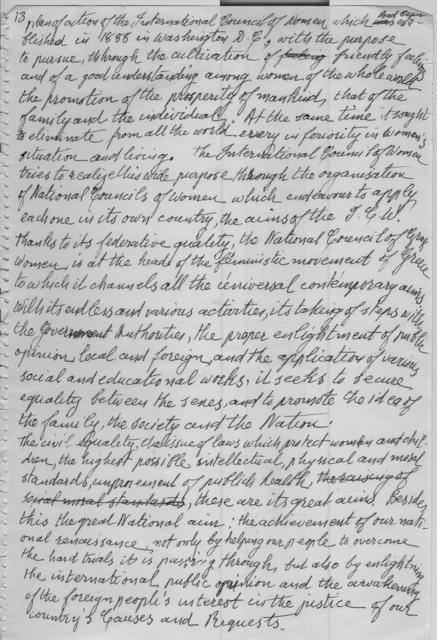 13 plan of action of the International Council of Women which was esta-
blished in 1888 in Washington D.C., with the purpose
to pursue, through the cultivation of feeling friendly feelings
and of a good understanding among women of the whole world
the promotion of the prosperity of mankind, that of the
family and the individual. At the same time it sought
to eliminate from all the world every inferiority in women's
situation and living. The International Council of Women
tries to realize this wide purpose through the organisation
of National Councils of Women which endeavour to apply
each one in its own country, the aims of the I.C.W.
Thanks to its federative quality, the National Council of Greek
Women, is at the head of the feministic movement of Greece
to which it channels all the universal contemporary aims
With its endless and various activities, its taking of steps with
the Government Authorities, the proper enlightment of public
opinion, local and foreign, and the application of various
social and educational works, it seeks to secure
equality between the sexes, and to promote the idea of
the family, the society and the Nation.
the civil equality, the issue of laws which protect women and chil-
dren, the highest possible intellectual, physical and moral
standards, improvement of public health the raising of
social moral standards, these are its great aims. Besides
this the great National aim: the achievement of our nati-
onal renaissance, not only by helping our people to overcome
the hard trials it is passing through, but also by enlightening
the international public opinion and the awakening
of the foreign people's interest in the justice of our
country's Causes and Requests.